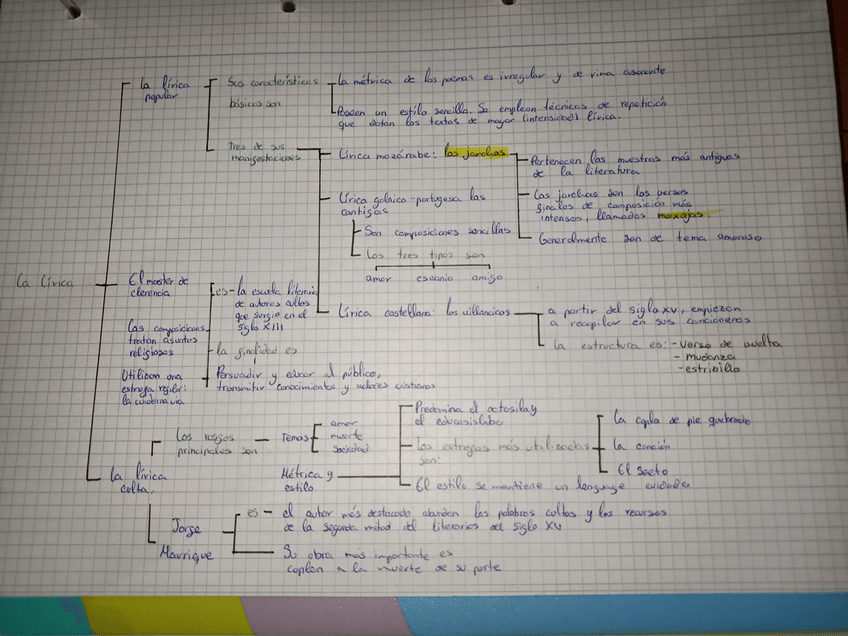 La lírica
La lírica
popular
Sus características
básicas son
La métrica de los poemas es irregular y de rima asonante
Poseen un estilo sencillo. Se emplean técnicas de repetición
que dotan los textos de mayor (intensidad) lírica.
Tres de sus
manifestaciones
Lírica mozárabe: las jarchas
Pertenecen las muestras más antiguas
de la literatura
Las jarchas son los versos
finales de composición más
intensos, llamados moxajas
Generalmente son de tema amoroso
Lírica galaico-portugesa las
cantigas
Son composiciones sencillas
Los tres tipos son
amor escanio amigo
Lírica castellana: los villancicos
a partir del siglo XV, empiezan
a recopilar en sus cancioneros
la estructura es: - verso de vuelta
- mudanza
- estribillo
El master de
clerencia
es - la escuela literaria
de autores cultos
que surgio en el
siglo XIII
Las composiciones
tratan asuntos
religiosos
la finalidad es
Persuadir y educar al público,
transmitir conocimientos y valores cristianos
Utilizan una
estrofa regular:
la cuadernavia
La lírica
culta.
Los rasgos
principales son
Temas
amor
muerte
sociedad
Métrica y
estilo
Predomina el octosilay
el
Las estrofas más utilizadas
son:
la copla de pie quebrado
la canción
El
El estilo se mantiene un lenguage cuidado
Jorge
Manrique
es - el autor más destacado abundan las palabras cultas y los recursos
de la segunda mitad del literarios del siglo XV
Su obra más importante es
coplen a la muerte de su